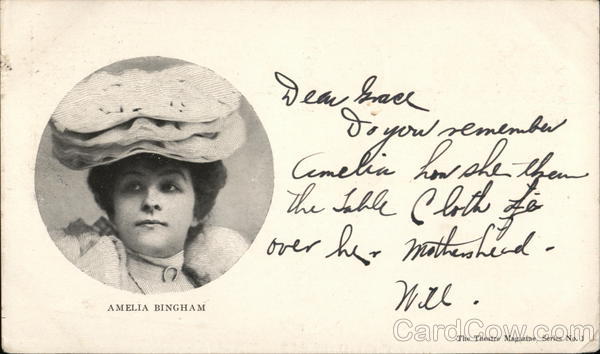 Dear Grace
Do you remember
Amelia how she
the Table Cloth
over her Mothers head -
Will.
AMELIA BINGHAM
The Theatre Magazine, Series No. 1
CardCow.com